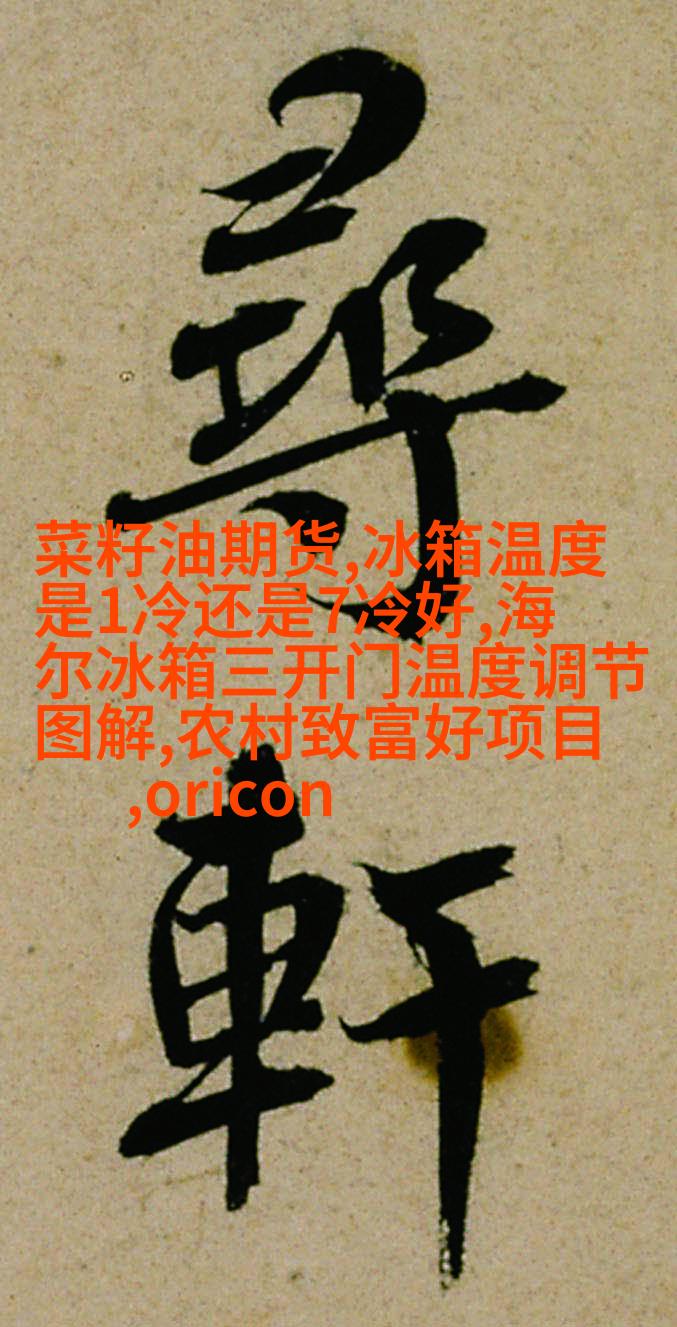 尋
軒
菜籽油期货,冰箱温度
是1冷还是7冷好,海
尔冰箱三开门温度调节
图解,农村致富好项目
,oricon